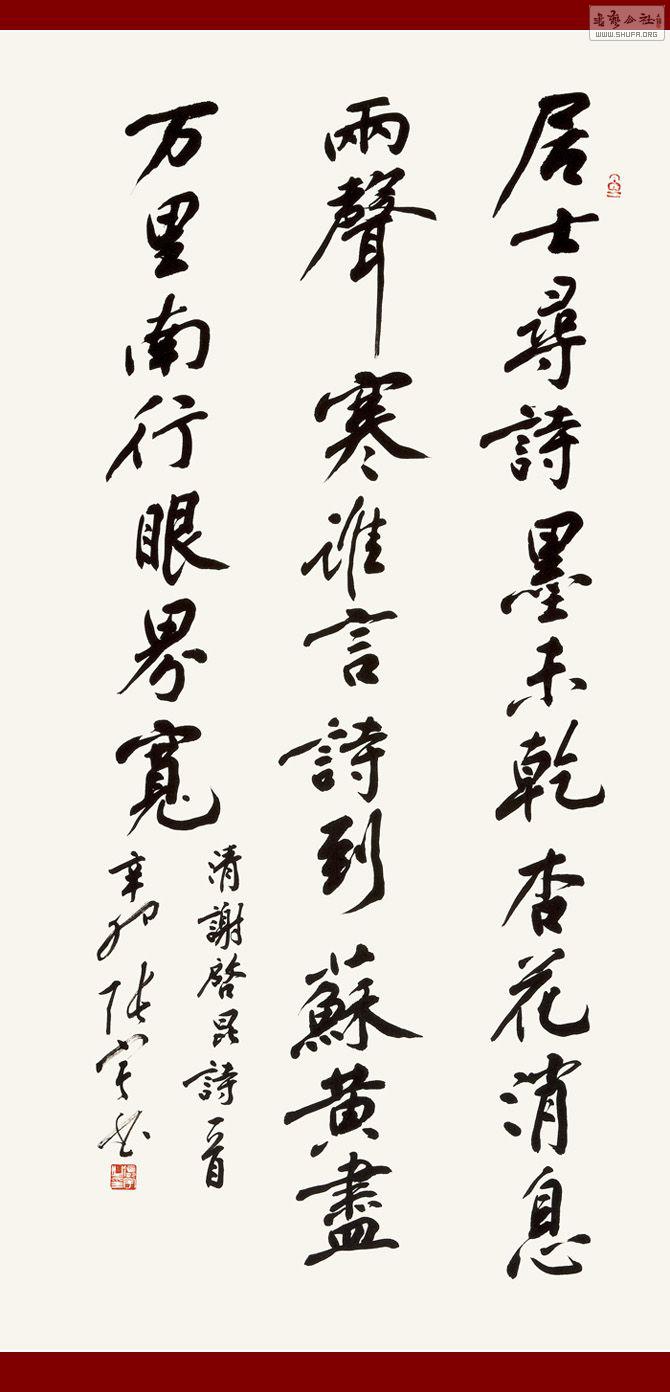 居士尋詩墨未乾杏花消息
兩聲寒谁言詩到蘇黄盡
万里南行眼界寬
清謝啓昆詩一首
辛卯
書藝公社
WWW.SHUFA.ORG